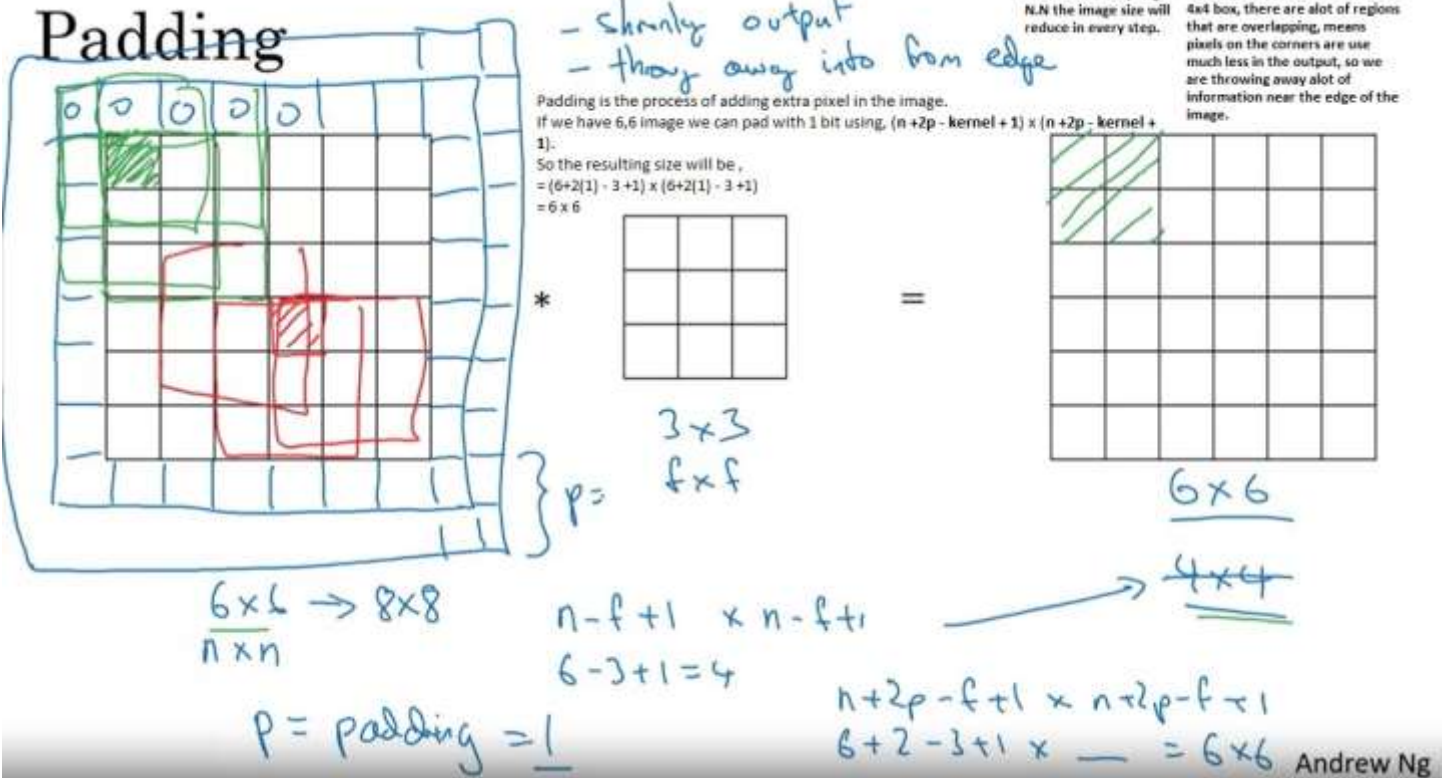 Padding
- shrinky output
- throw away info from edge
N.N the image size will
reduce in every step.
4x4 box, there are alot of regions
that are overlapping, means
pixels on the corners are use
much less in the output, so we
are throwing away alot of
information near the edge of the
image.
Padding is the process of adding extra pixel in the image.
If we have 6,6 image we can pad with 1 bit using, (n +2p - kernel + 1) x (n +2p - kernel +
1).
So the resulting size will be ,
= (6+2(1) - 3 +1) x (6+2(1) - 3 +1)
= 6 x 6
0 0 0 0 0
*
=
3×3
f×f
p=
6×6
4×4
6×6 → 8×8
n×n
n-f+1 × n-f+1
6-3+1=4
p = padding = 1
n+2p-f+1 × n+2p-f+1
6+2-3+1 × __ = 6×6
Andrew Ng